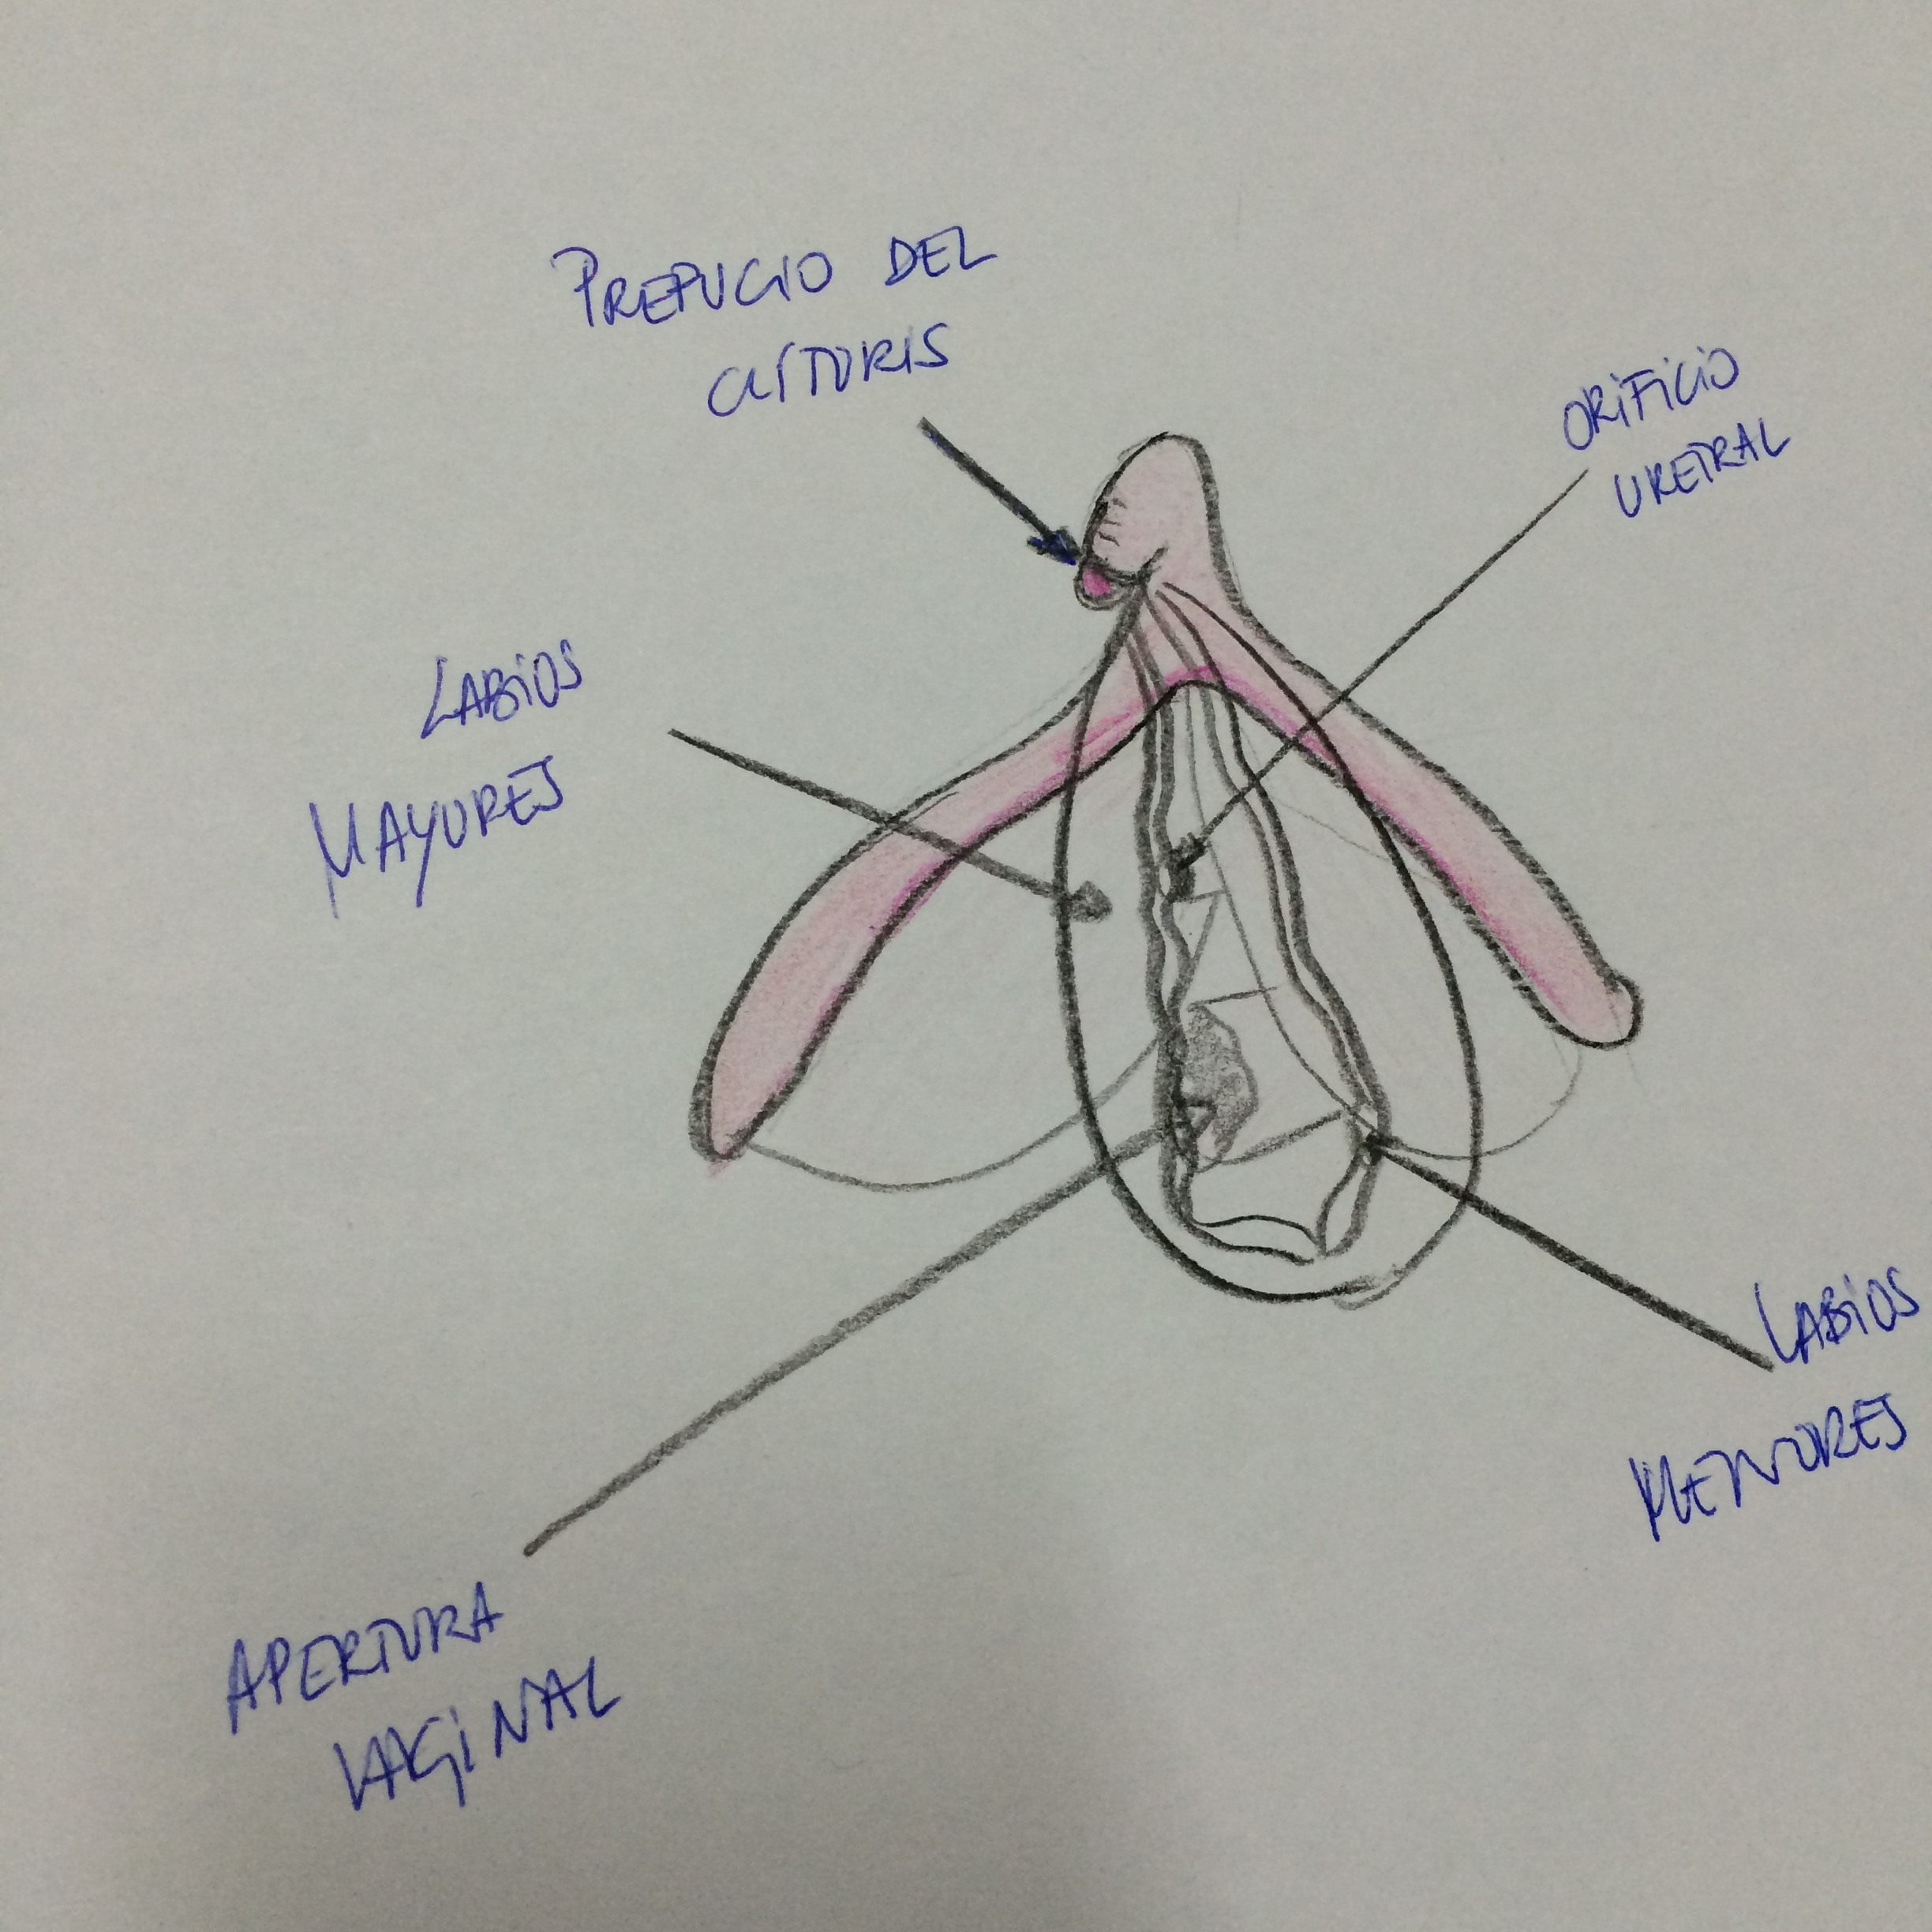 PREPUCIO DEL
CLÍTORIS
ORIFICIO
URETRAL
LABIOS
MAYORES
LABIOS
MENORES
APERTURA
VAGINAL